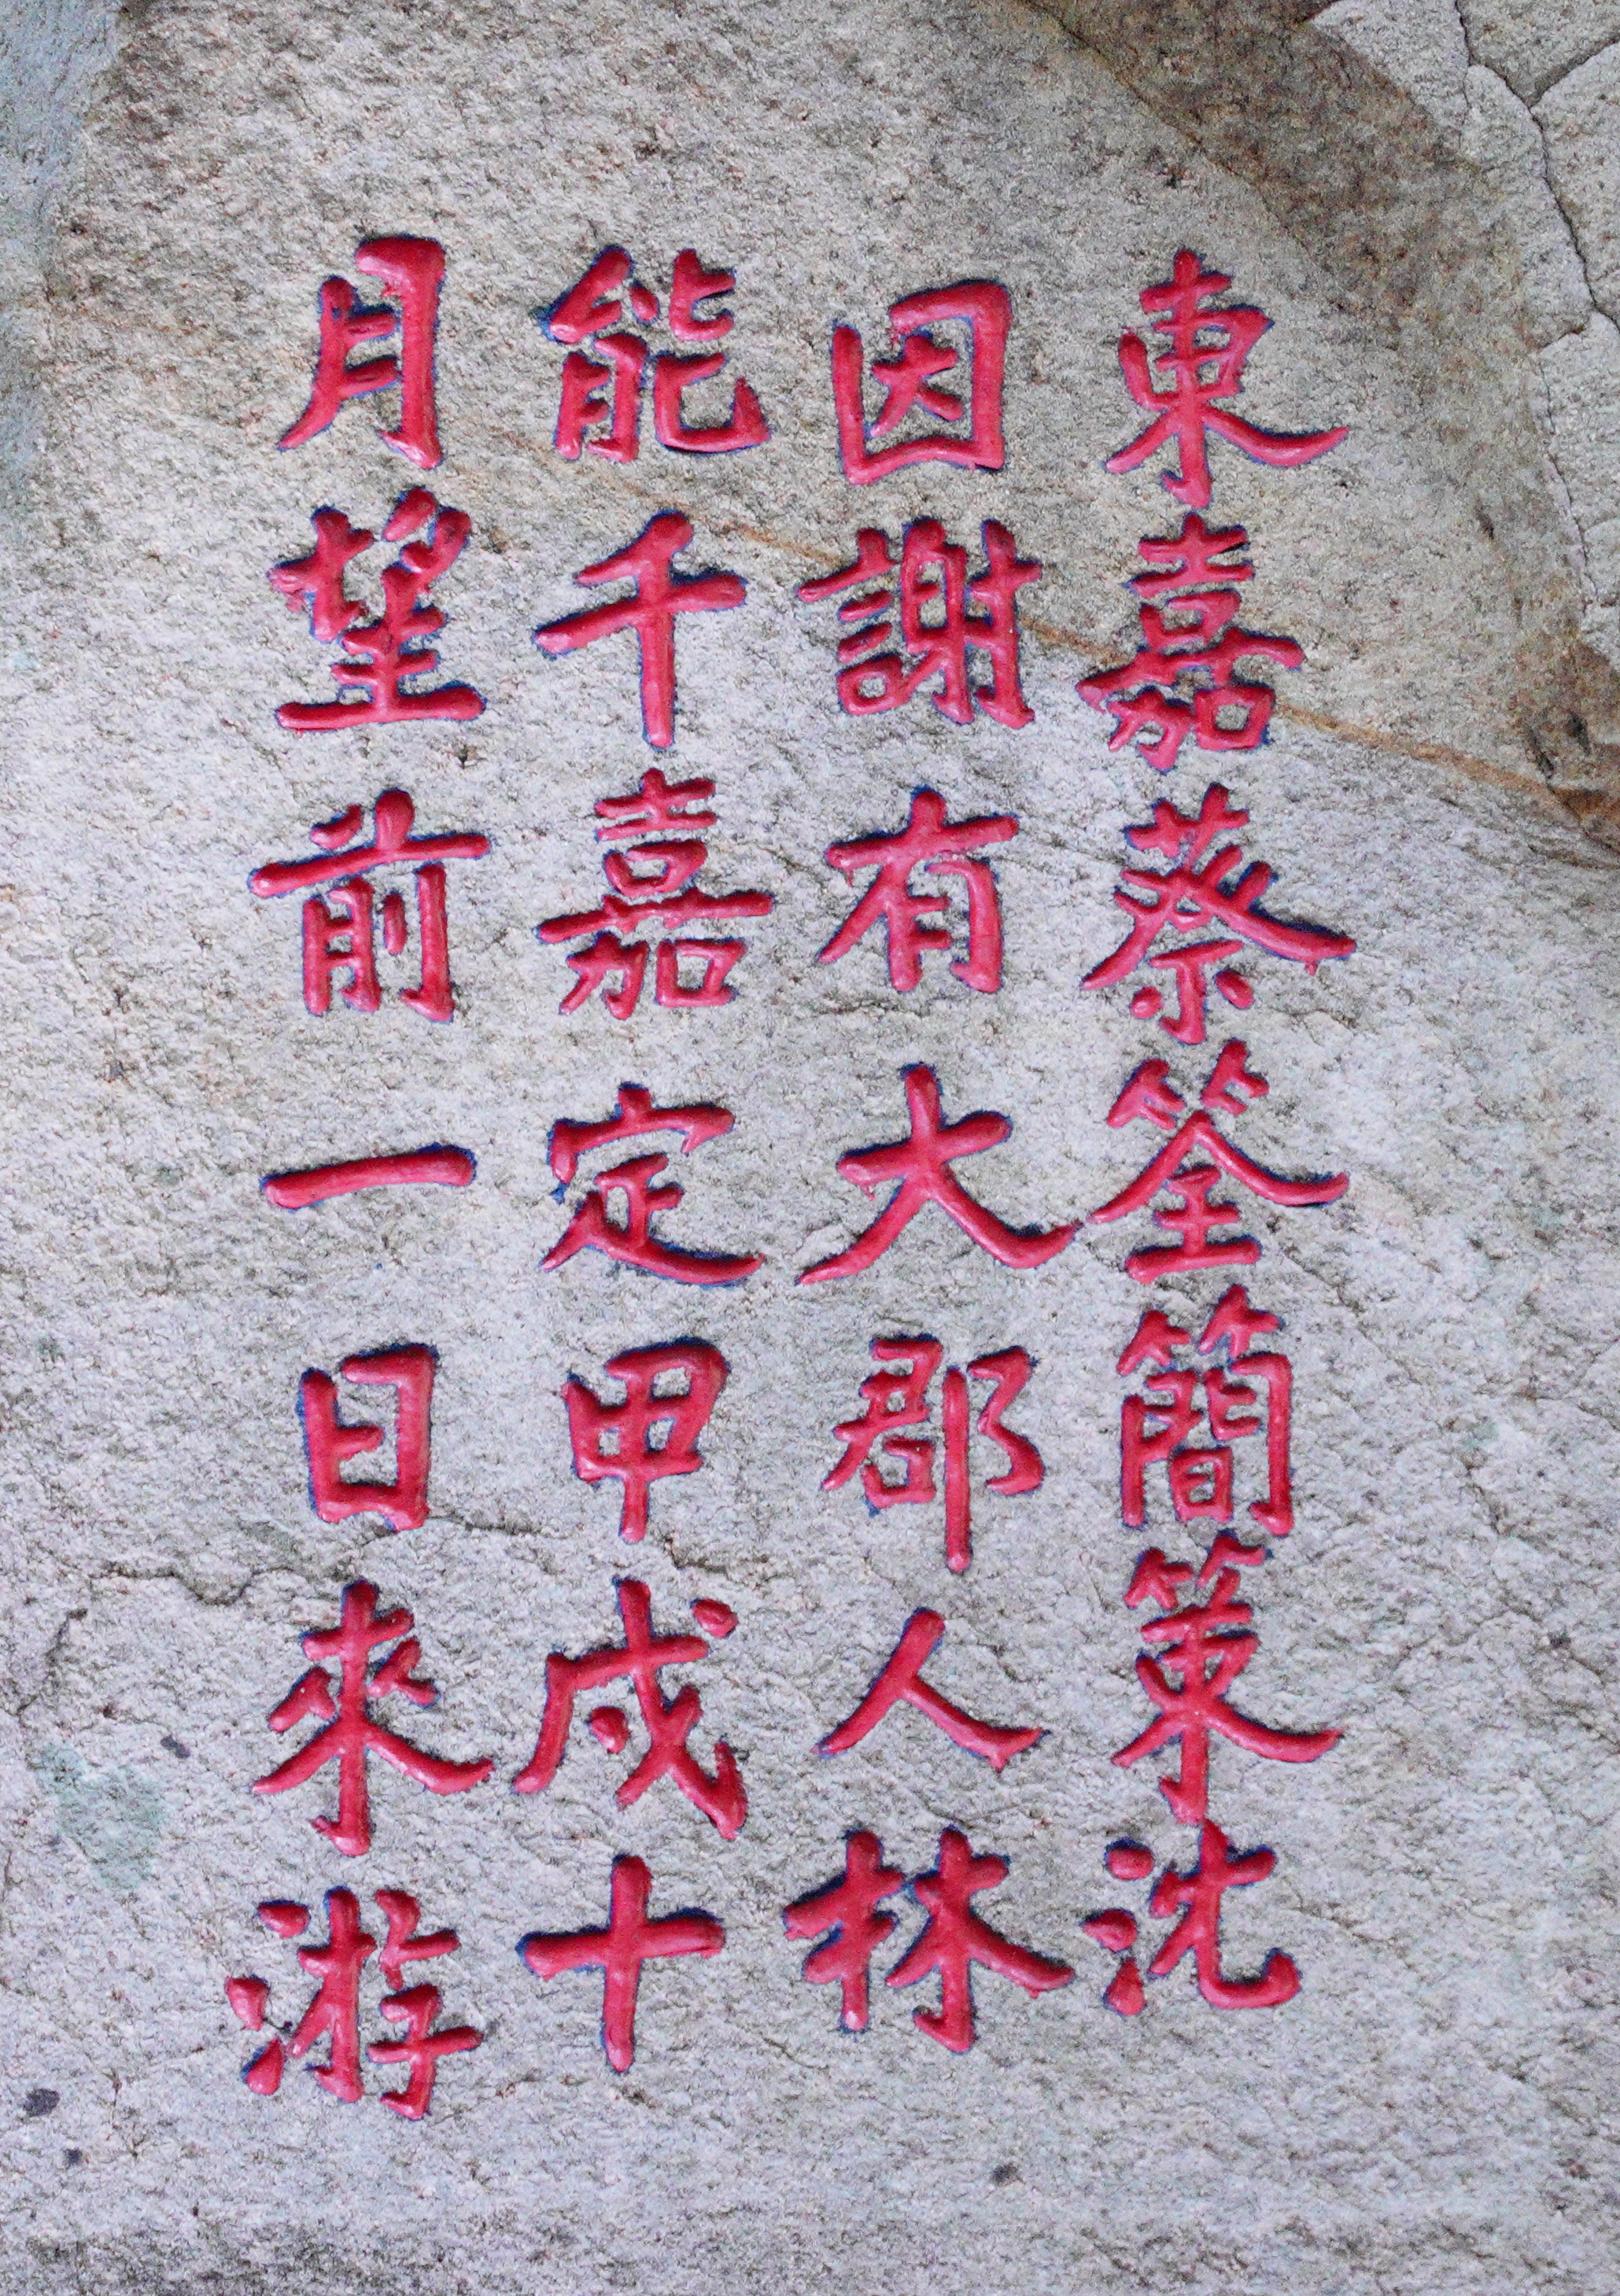 東嘉蔡筌簡策沈
因謝有大郡人林
能千嘉定甲戌十
月望前一日來游